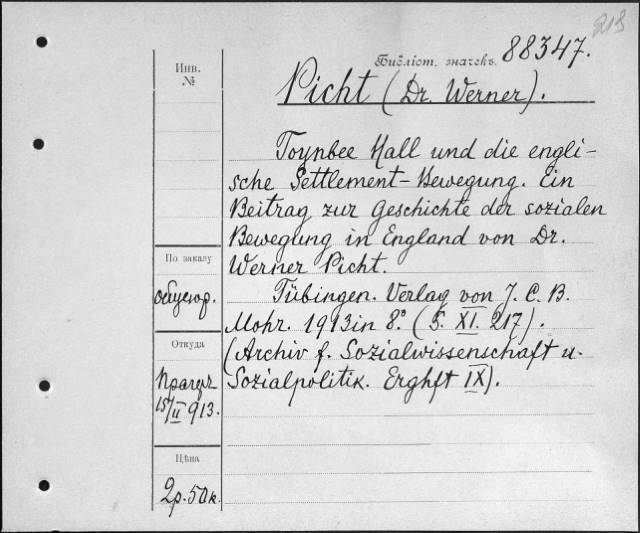 213
Библіот. значекъ. 88347.
Инв.
№
Picht (Dr. Werner).
Toynbee Hall und die engli-
sche Settlement-Bewegung. Ein
Beitrag zur Geschichte der sozialen
Bewegung in England von Dr.
Werner Picht.
Tübingen. Verlag von J. C. B.
Mohr. 1913 in 8° (S. XI. 217).
(Archiv f. Sozialwissenschaft u.
Sozialpolitik. Erghft IX).
По заказу
Откуда
15/II 913.
Цѣна
2р. 50к.